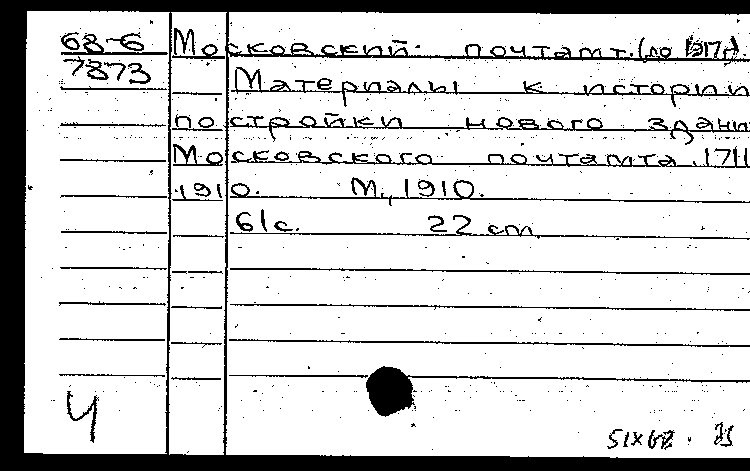 68-6 Московский почтамт. (до 1917г).
7873 Материалы к истории
постройки нового здани
Московского почтамта. 1711
1910. М., 1910.
61с. 22 cm.
Ч